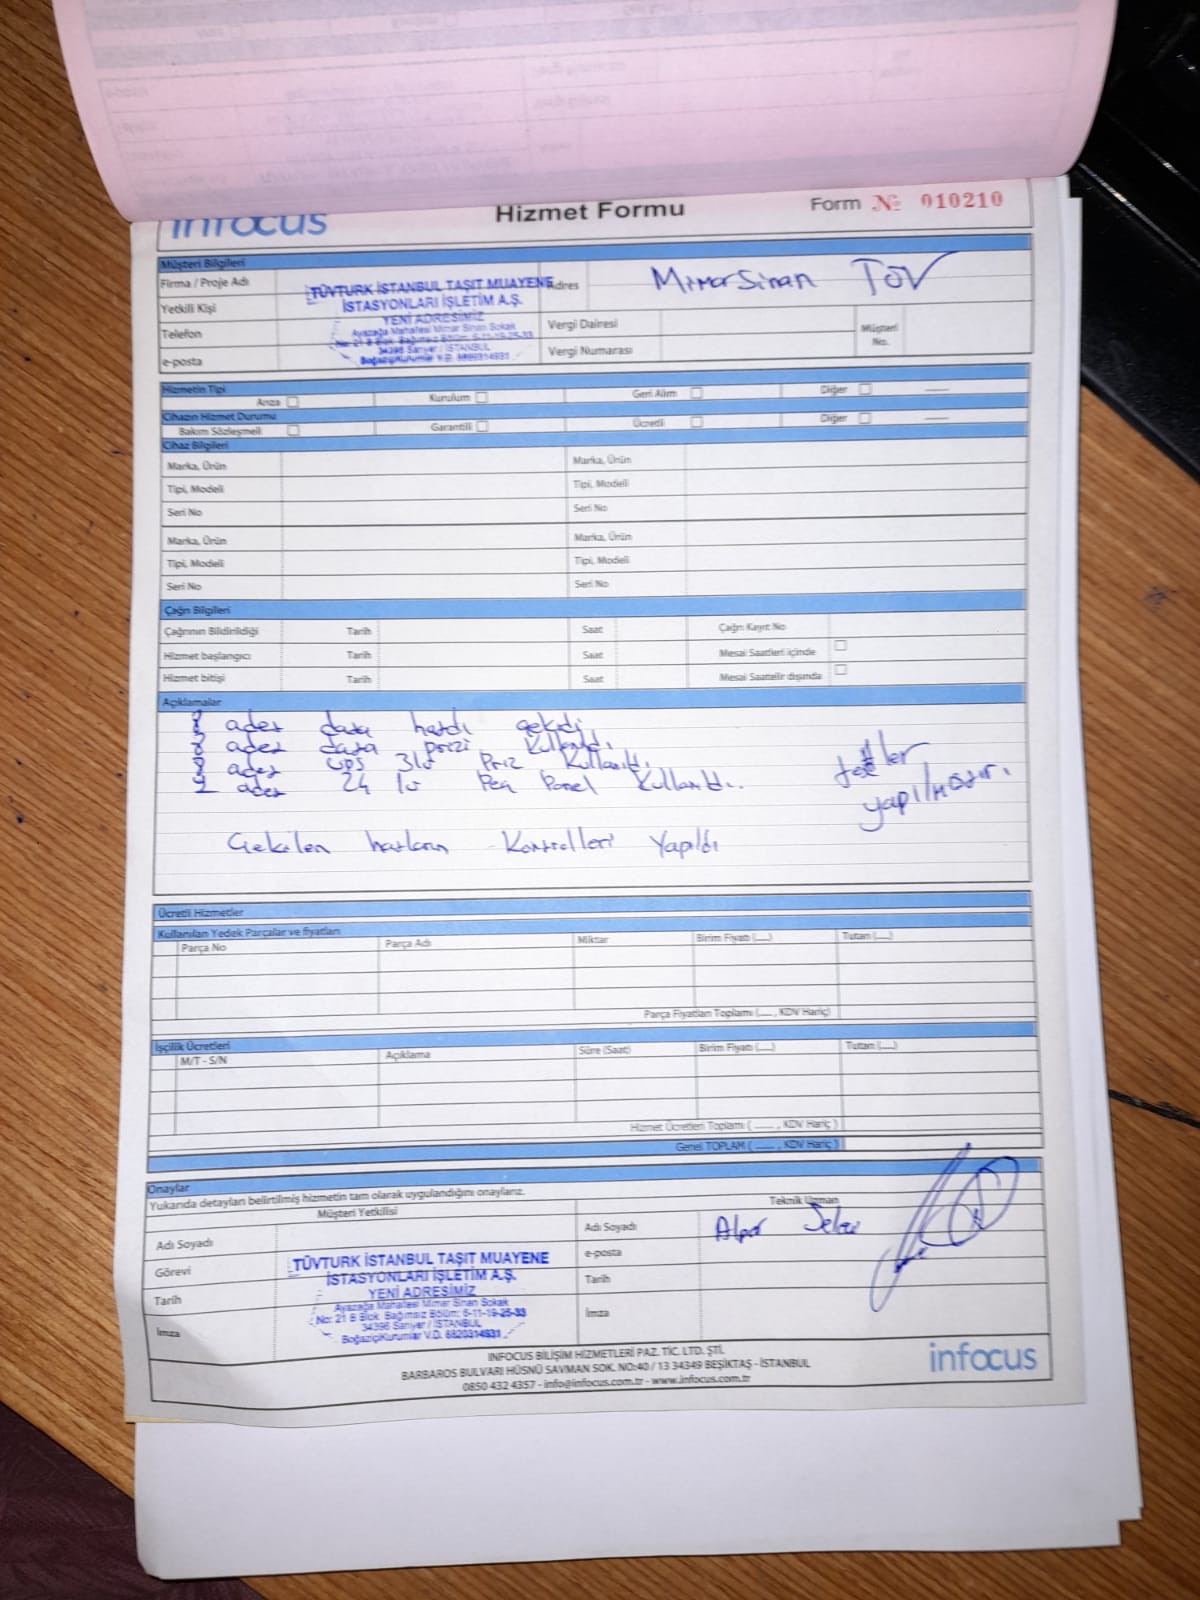 infocus
Hizmet Formu
Form № 010210
Müşteri Bilgileri
Firma / Proje Adı
TÜVTURK İSTANBUL TAŞIT MUAYENE
İSTASYONLARI İŞLETİM A.Ş.
YENİ ADRESİMİZ
Ayazağa Mahallesi Mimar Sinan Sokak
No: 21 B Blok. Bağımsız Bölüm: 6-11-19-25-33
34396 Sarıyer / İSTANBUL
Boğaziçi Kurumlar V.D. 6820314931
Adres
Mimar Sinan TÜV
Yetkili Kişi
Telefon
Vergi Dairesi
Müşteri No.
e-posta
Vergi Numarası
Hizmetin Tipi
Arıza
Kurulum
Geri Alım
Diğer
Cihazın Hizmet Durumu
Bakım Sözleşmeli
Garantili
Ücretli
Diğer
Cihaz Bilgileri
Marka, Ürün
Marka, Ürün
Tipi, Modeli
Tipi, Modeli
Seri No
Seri No
Marka, Ürün
Marka, Ürün
Tipi, Modeli
Tipi, Modeli
Seri No
Seri No
Çağrı Bilgileri
Çağrının Bildirildiği
Tarih
Saat
Çağrı Kayıt No
Hizmet başlangıcı
Tarih
Saat
Mesai Saatleri içinde
Hizmet bitişi
Tarih
Saat
Mesai Saatelir dışında
Açıklamalar
8 adet data hattı çekildi.
8 adet data prizi kullanıldı.
8 adet ups 3lü Priz kullanıldı.
adet 24 lü Peç Panel kullanıldı.
testler
yapılmıştır.
Çekilen hatların Kontrolleri Yapıldı
Ücretli Hizmetler
Kullanılan Yedek Parçalar ve fiyatları
Parça No
Parça Adı
Miktar
Birim Fiyatı (....)
Tutarı (....)
Parça Fiyatları Toplamı (.... , KDV Hariç)
İşçilik Ücretleri
M/T - S/N
Açıklama
Süre (Saat)
Birim Fiyatı (....)
Tutarı (....)
Hizmet Ücretleri Toplamı ( .... , KDV Hariç )
Genel TOPLAM ( .... , KDV Hariç )
Onaylar
Yukarıda detayları belirtilmiş hizmetin tam olarak uygulandığını onaylarız.
Müşteri Yetkilisi
Teknik Uzman
Adı Soyadı
Adı Soyadı
Görevi
e-posta
Tarih
Tarih
İmza
İmza
TÜVTURK İSTANBUL TAŞIT MUAYENE
İSTASYONLARI İŞLETİM A.Ş.
YENİ ADRESİMİZ
Ayazağa Mahallesi Mimar Sinan Sokak
No: 21 B Blok. Bağımsız Bölüm: 6-11-19-25-33
34396 Sarıyer / İSTANBUL
Boğaziçi Kurumlar V.D. 6820314931
INFOCUS BİLİŞİM HİZMETLERİ PAZ. TİC. LTD. ŞTİ.
BARBAROS BULVARI HÜSNÜ SAVMAN SOK. NO:40 / 13 34349 BEŞİKTAŞ - İSTANBUL
0850 432 4357 - info@infocus.com.tr - www.infocus.com.tr
infocus